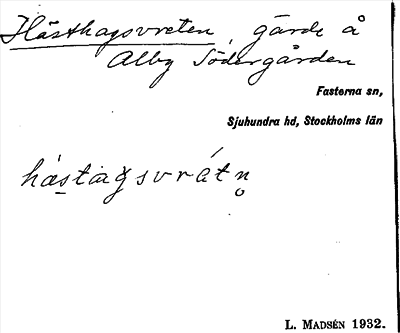 Hästhagsvreten, gärde å
Alby Södergården
Fasterna sn,
Sjuhundra hd, Stockholms län
hástagsvrátn̥
L. MADSÉN 1932.